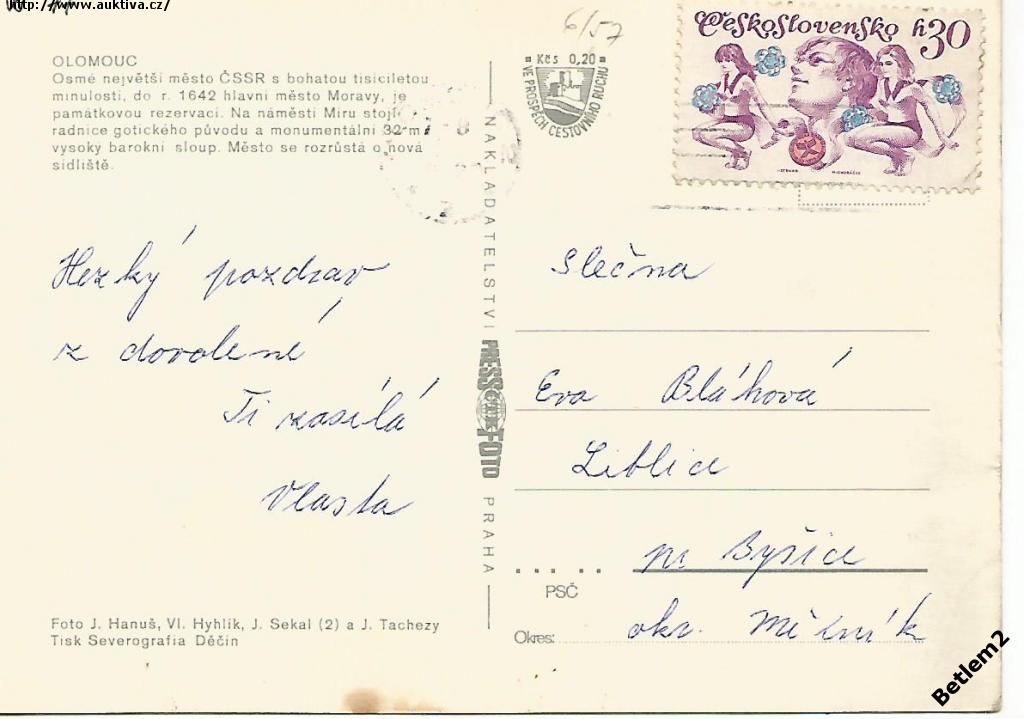 http://www.auktiva.cz/
6/57
Československo h30
Kčs 0,20
VE PROSPĚCH CESTOVNÍHO RUCHU
OLOMOUC
Osmé největší město ČSSR s bohatou tisíciletou
minulostí, do r. 1642 hlavní město Moravy, je
památkovou rezervací. Na náměstí Míru stojí
radnice gotického původu a monumentální 32 m
vysoký barokní sloup. Město se rozrůstá o nová
sídliště.
Hezký pozdrav
z dovolené
Ti zasílá
Vlasta
Foto J. Hanuš, Vl. Hyhlík, J. Sekal (2) a J. Tachezy
Tisk Severografia Děčín
NAKLADATELSTVÍ PRESSFOTO PRAHA
Slečna
Eva Bláhová
Liblice
p. Byšice
PSČ
Okres: okr. Mělník
Betlem2